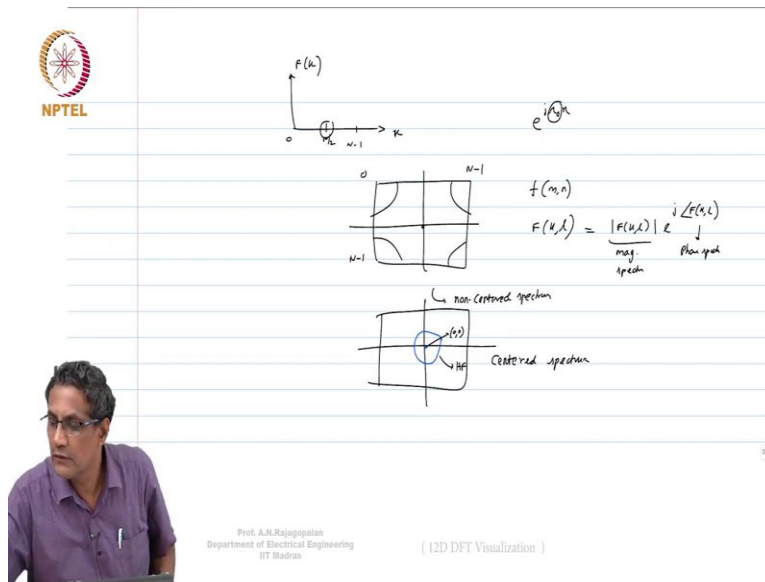 NPTEL
F(k)
0 N/2 N-1 k
e^j n
0 N-1
N-1
f(m,n)
F(k,l) = |F(k,l)| e^j∠F(k,l)
mag. spectr
Phase spect
non-centered spectrum
(0,0)
HF
Centered spectrum
Prof. A.N.Rajagopalan
Department of Electrical Engineering
IIT Madras
( 12D DFT Visualization )